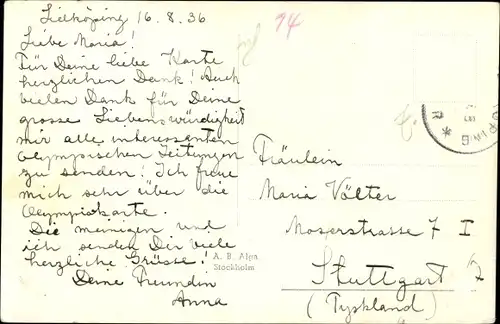 Lidköping 16.8.36
Liebe Maria!
Für Deine liebe Karte
herzlichen Dank! Auch
vielen Dank für Deine
grosse Liebenswürdigkeit
mir alle interessanten
olympischen Zeitungen
zu senden! Ich freue
mich sehr über die
Olympiakarte.
Die meinigen und
ich senden Dir viele
herzliche Grüsse!
Deine Freundin
Anna
94
A. B. Alga
Stockholm
Fräulein
Maria Völter
Moserstrasse 7 I
Stuttgart
(Tyskland)